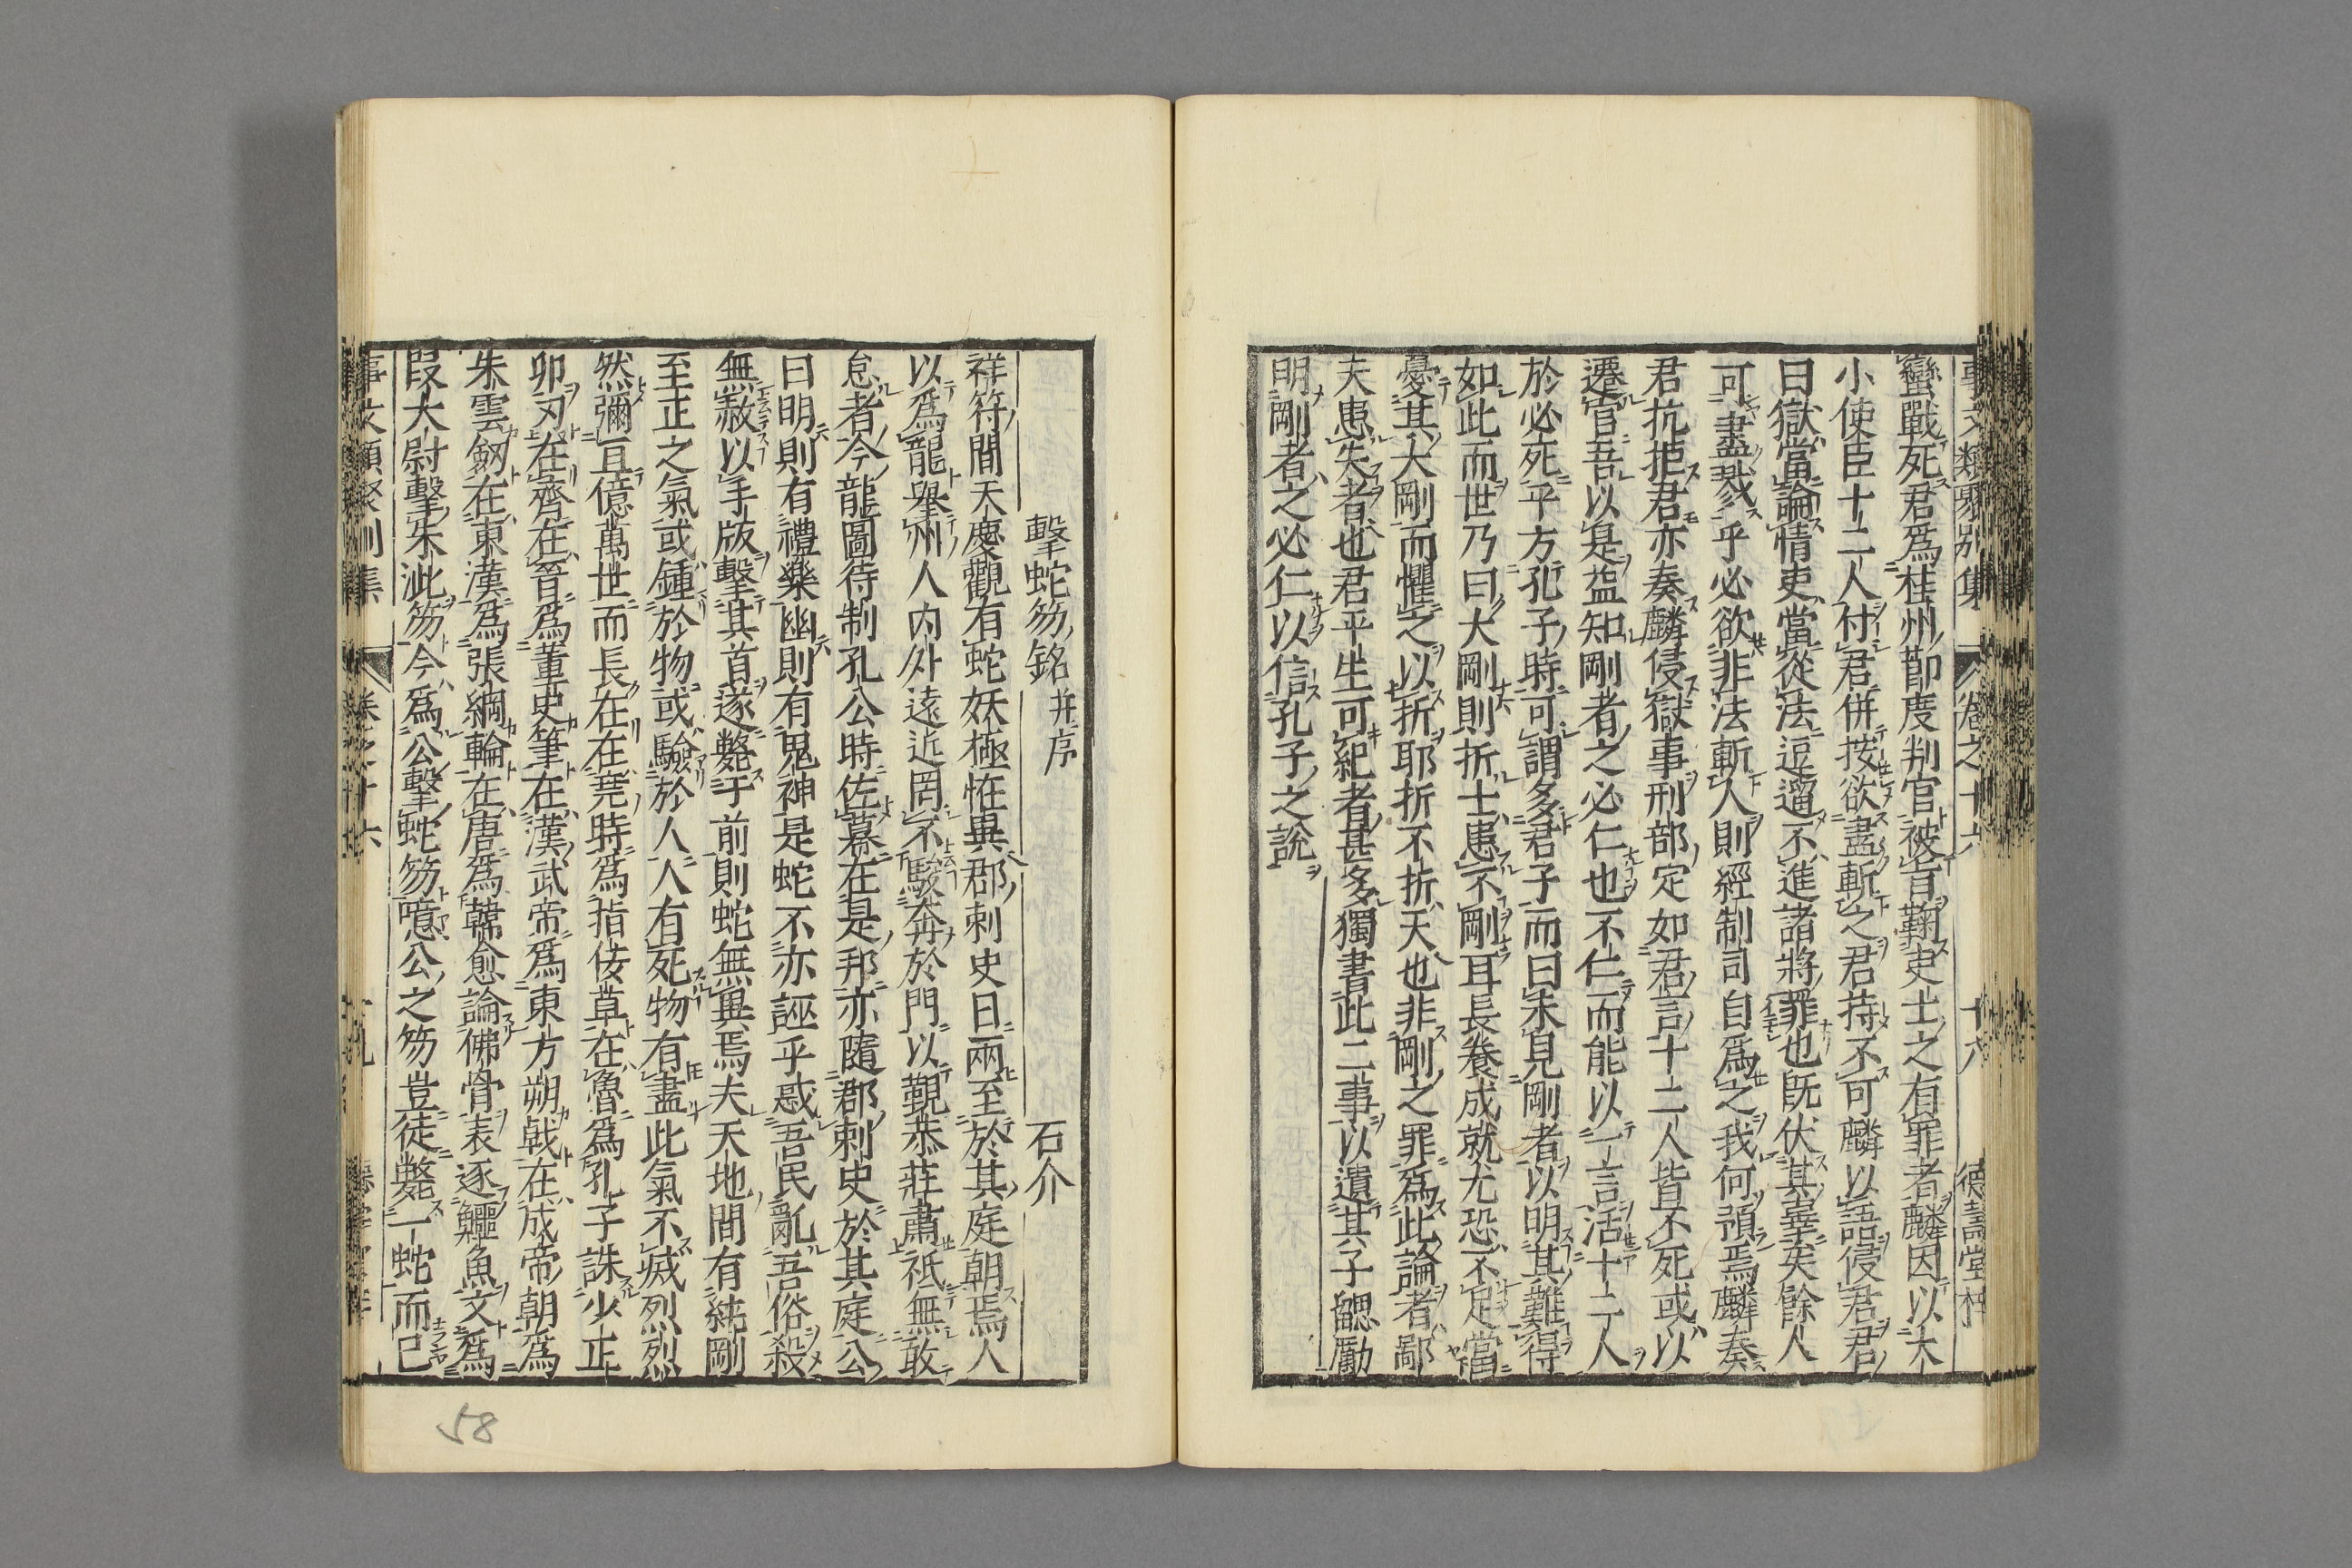 事文類聚別集 卷之十六 十八 德壽堂梓
蠻戰死君爲桂州節度判官被旨鞠吏士之有罪者麟因以大
小使臣十二人付君併按欲盡斬之君持不可麟以語侵君君
曰獄當論情吏當從法逗遛不進諸將罪也旣伏其辜矣餘人
可盡戮乎必欲非法斬人則經制司自爲之我何預焉麟奏
君抗拒君亦奏麟侵獄事刑部定如君言十二人皆不死或以
遷官吾以是益知剛者之必仁也不仁而能以一言活十二人
於必死乎方孔子時可謂多君子而曰未見剛者以明其難得
如此而世乃曰大剛則折士患不剛耳長養成就尤恐不足當
憂其大剛而懼之以折耶折不折天也非剛之罪爲此論者鄙
夫患失者也君平生可紀者甚多獨書此二事以遺其子勰勵
明剛者之必仁以信孔子之說
擊蛇笏銘 并序 石介
祥符間天慶觀有蛇妖極恠異郡刺史日兩至於其庭朝焉人
以爲龍擧州人內外遠近罔不駿奔於門以覲恭莊肅祗無敢
怠者今龍圖待制孔公時佐幕在是邦亦隨郡刺史於其庭公
曰明則有禮樂幽則有鬼神是蛇不亦誣乎惑吾民亂吾俗殺
無赦以手版擊其首遂斃于前則蛇無異焉夫天地間有純剛
至正之氣或鍾於物或驗於人人有死物有盡此氣不滅烈烈
然彌亘億萬世而長在在堯時爲指佞草在魯爲孔子誅少正
卯刃在齊在晉爲董史筆在漢武帝爲東方朔戟在成帝朝爲
朱雲劔在東漢爲張綱輪在唐爲韓愈論佛骨表逐鱷魚文爲
段大尉擊朱泚笏今爲公擊蛇笏噫公之笏豈徒斃一蛇而已
58